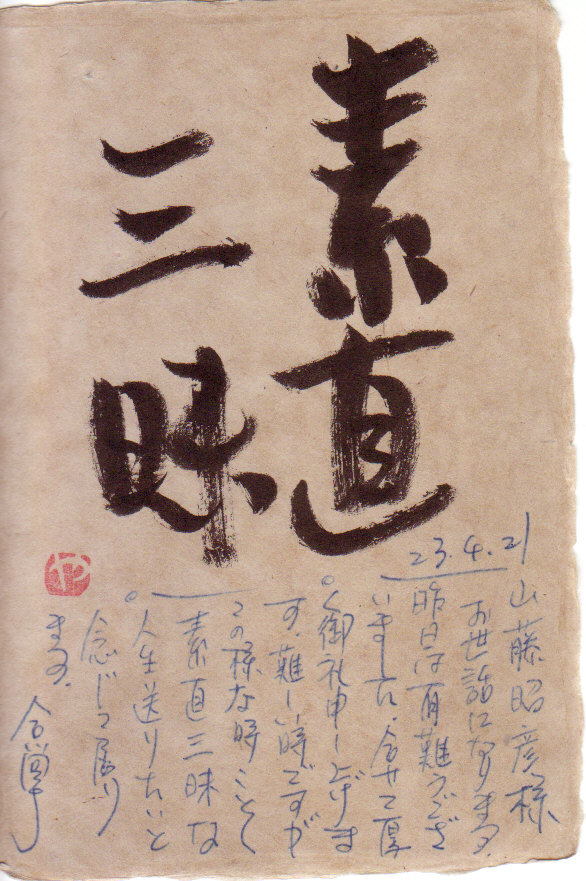 素直
三味
23.4.21
山藤昭彦様
お世話になります。
昨日は有難うござ
いました。合せて厚
く御礼申し上げま
す。難しい時ですが
この様な時こそ
素直三昧な
人生送りたいと
念じて居り
ます。合掌